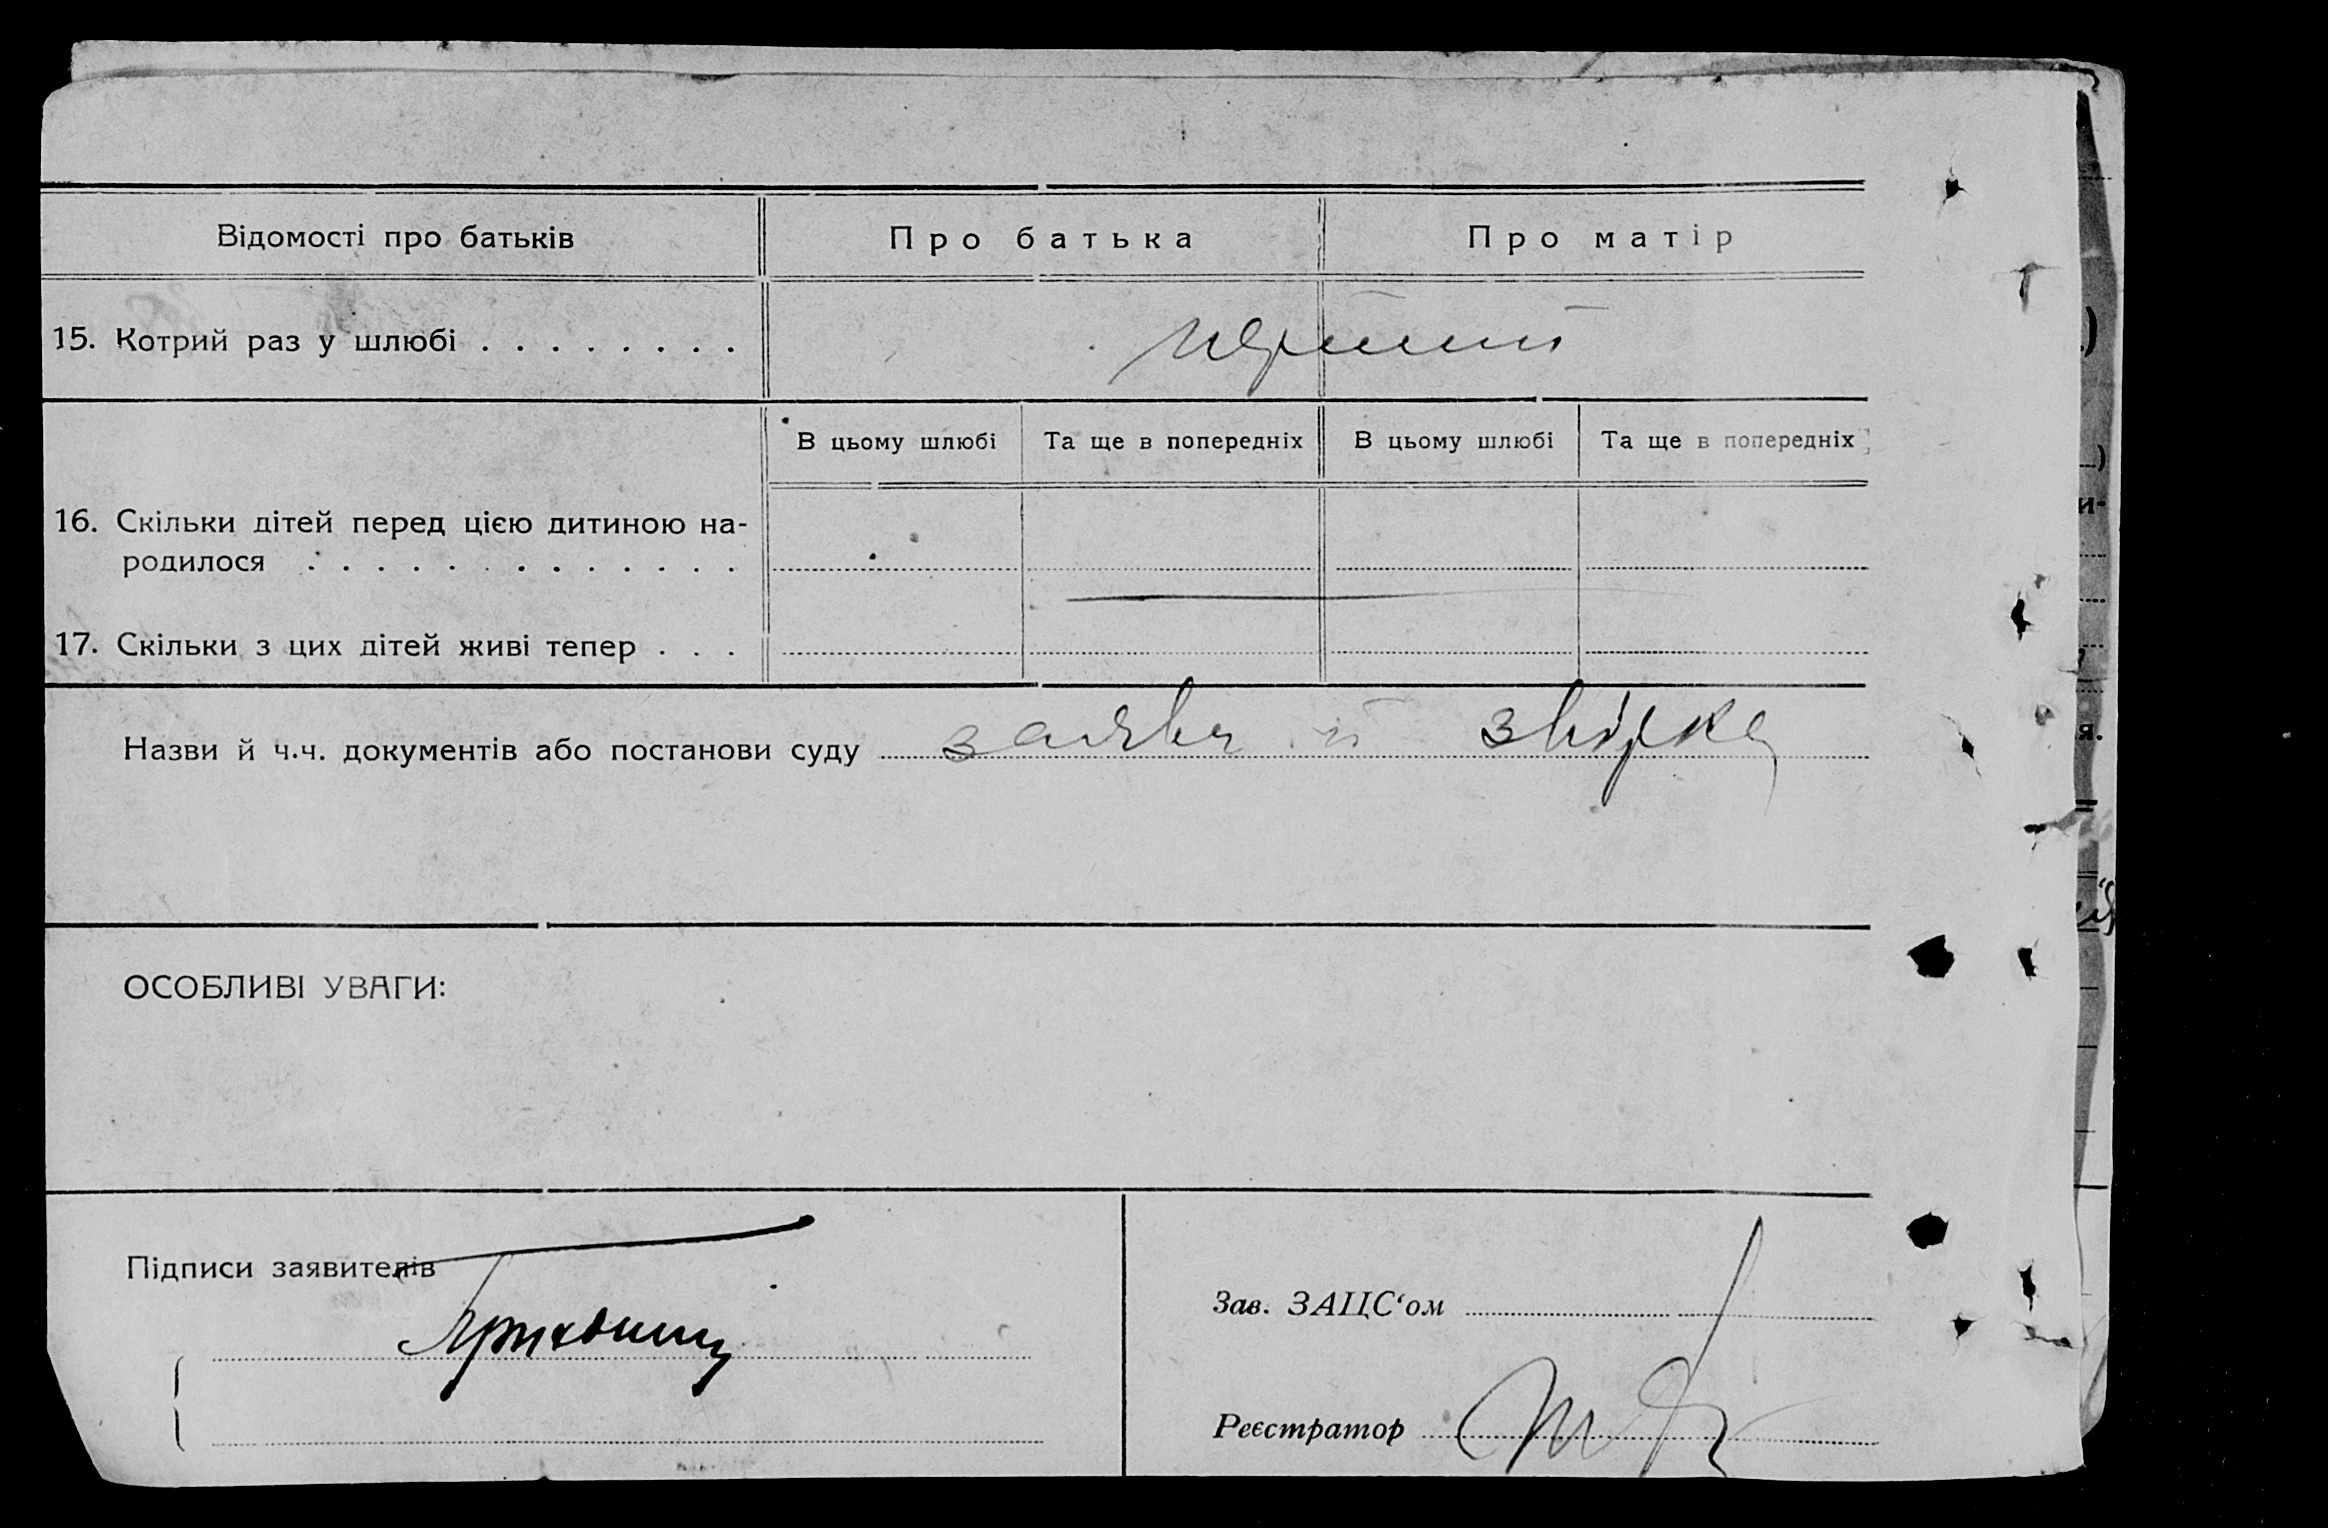 Відомості про батьків Про батька Про матір
15. Котрий раз у шлюбі . . . . . . . . перший
В цьому шлюбі Та ще в попередніх В цьому шлюбі Та ще в попередніх
16. Скільки дітей перед цією дитиною на-
родилося . . . . . . . . . . . . .
17. Скільки з цих дітей живі тепер . . .
Назви й ч.ч. документів або постанови суду заява й
ОСОБЛИВІ УВАГИ:
Підписи заявителів
Зав. ЗАЦС‘ом
Реєстратор